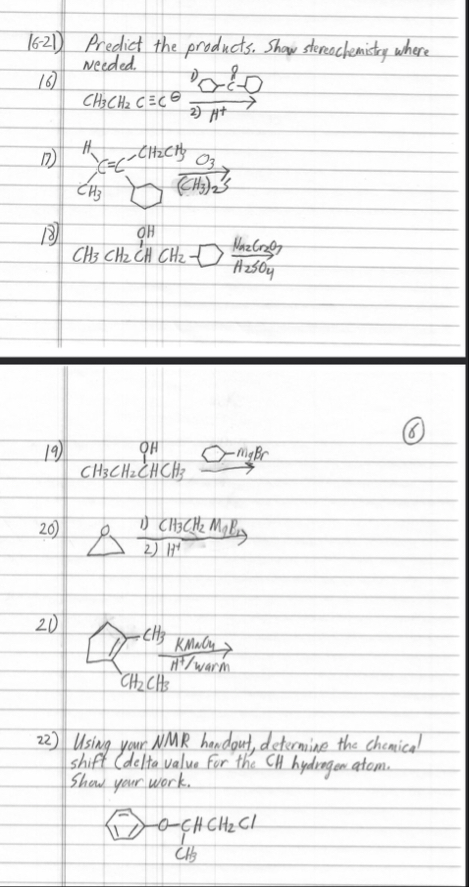 16-21) Predict the products. Show stereochemistry where
needed.
16) CH3CH2 C≡C⊖ 1) O C 2) H+
17) H C=C CH2CH3 CH3 O3 (CH3)2S
18) OH
CH3 CH2 CH CH2 Na2Cr2O7
H2SO4
6
19) OH MgBr
CH3CH2CHCH3
20) O 1) CH3CH2 MgBr
2) H+
21) CH3 KMnO4
H+/warm
CH2CH3
22) Using your NMR handout, determine the chemical
shift (delta value for the CH hydrogen atom.
Show your work.
O-CHCH2Cl
CH3